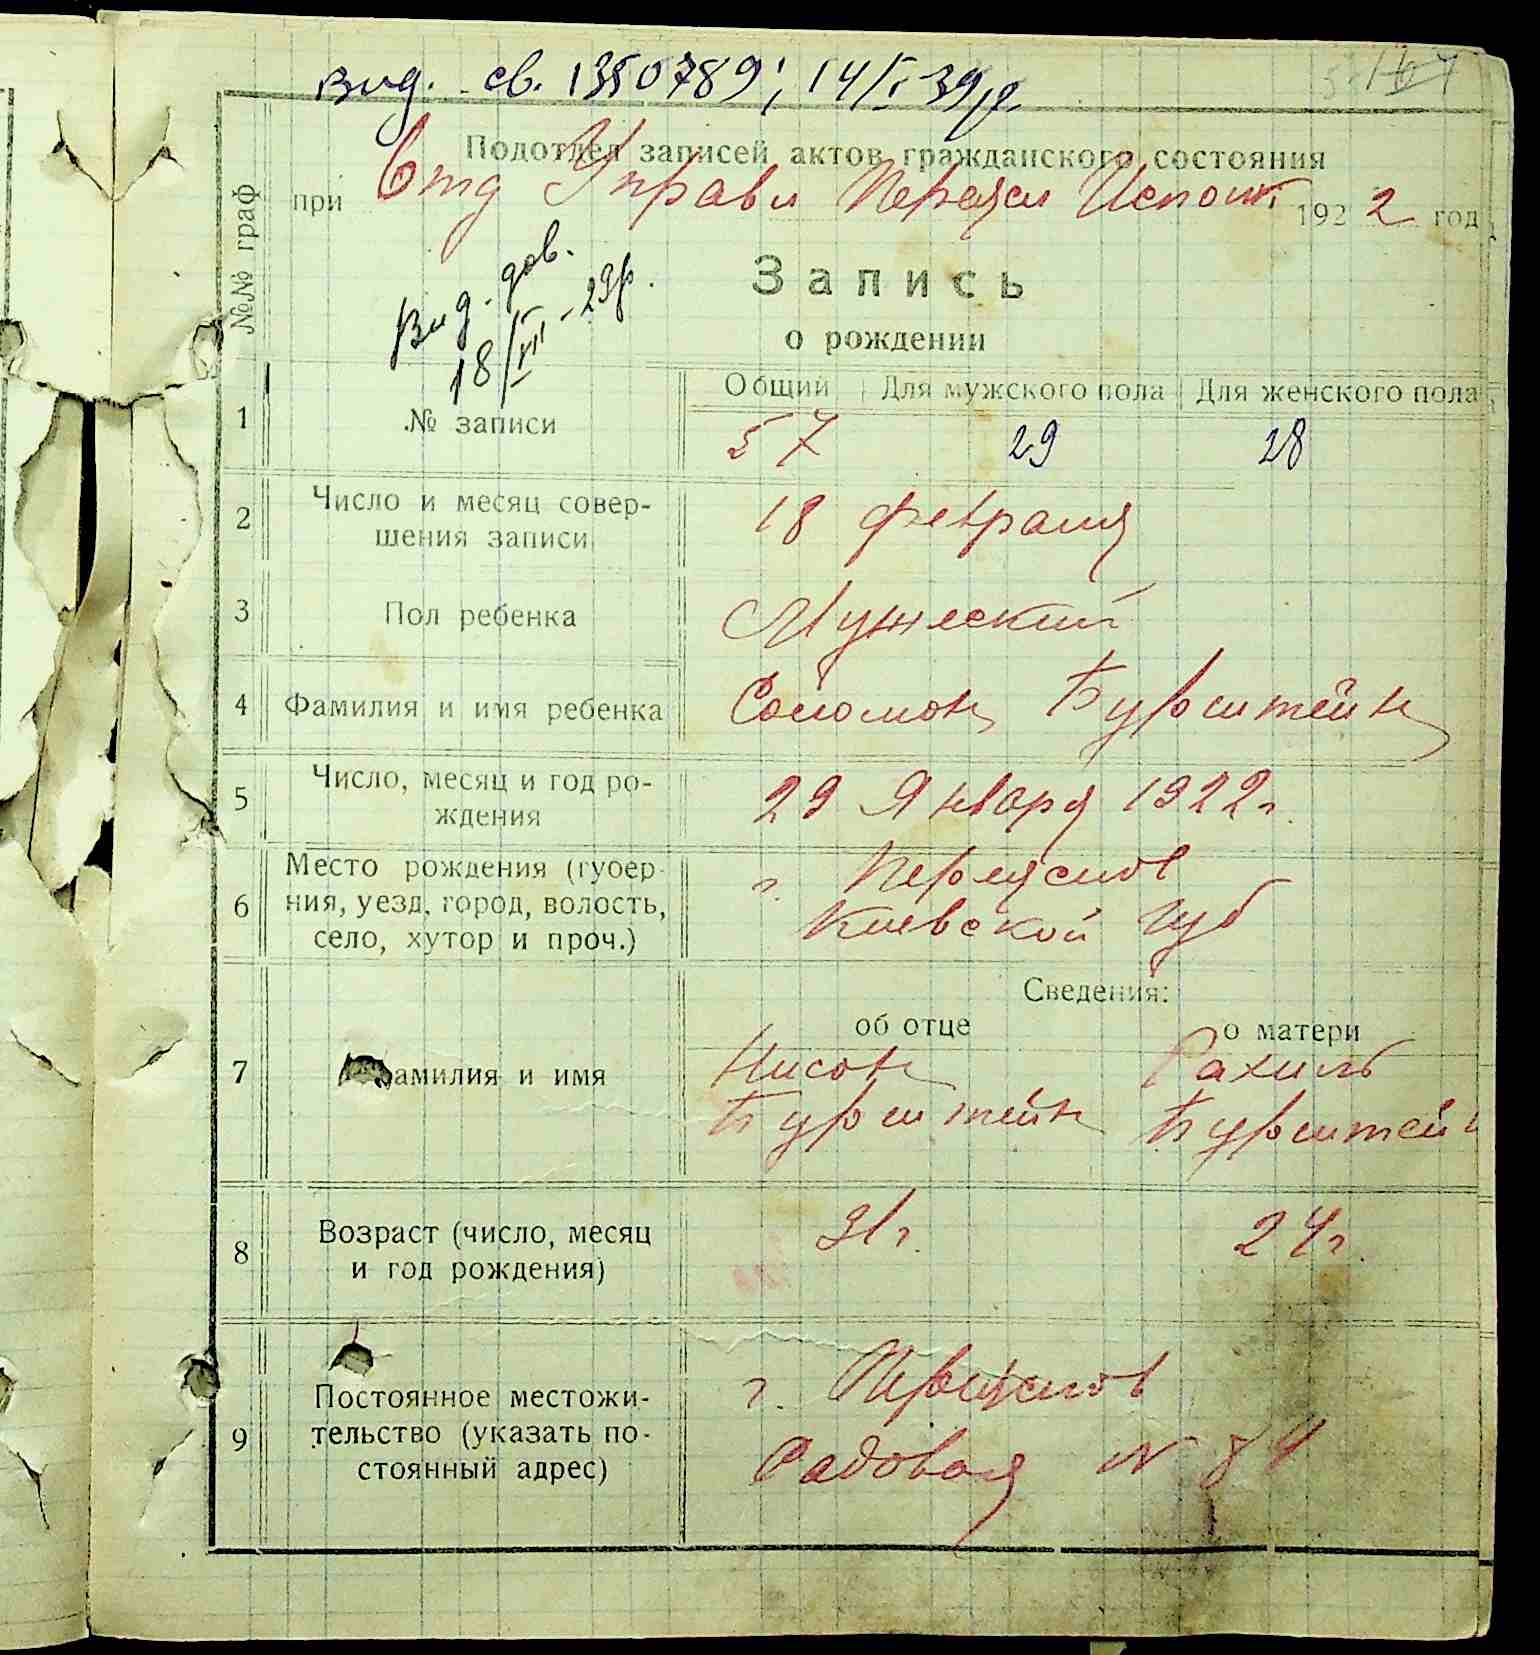 Вид. св. 1350789; 14/I 39р.
Подотдел записей актов гражданского состояния
при Отд Управл Переясл Исполк 1922 год
Вид. дов.
18/VII - 29р.
№№ граф
Запись
о рождении
Общий Для мужского пола Для женского пола
1 № записи 57 29 28
2 Число и месяц совер-
шения записи 18 февраля
3 Пол ребенка Мужеский
4 Фамилия и имя ребенка Соломон Бурштейн
5 Число, месяц и год ро-
ждения 29 Января 1922 г.
6 Место рождения (губер-
ния, уезд, город, волость,
село, хутор и проч.) г. Переяслов
Киевской губ
Сведения:
об отце о матери
7 амилия и имя Нисон Рахиль
Бурштейн Бурштейн
8 Возраст (число, месяц
и год рождения) 31 г. 24 г.
9 Постоянное местожи-
тельство (указать по-
стоянный адрес) г. Переяслов
Садовая N 84